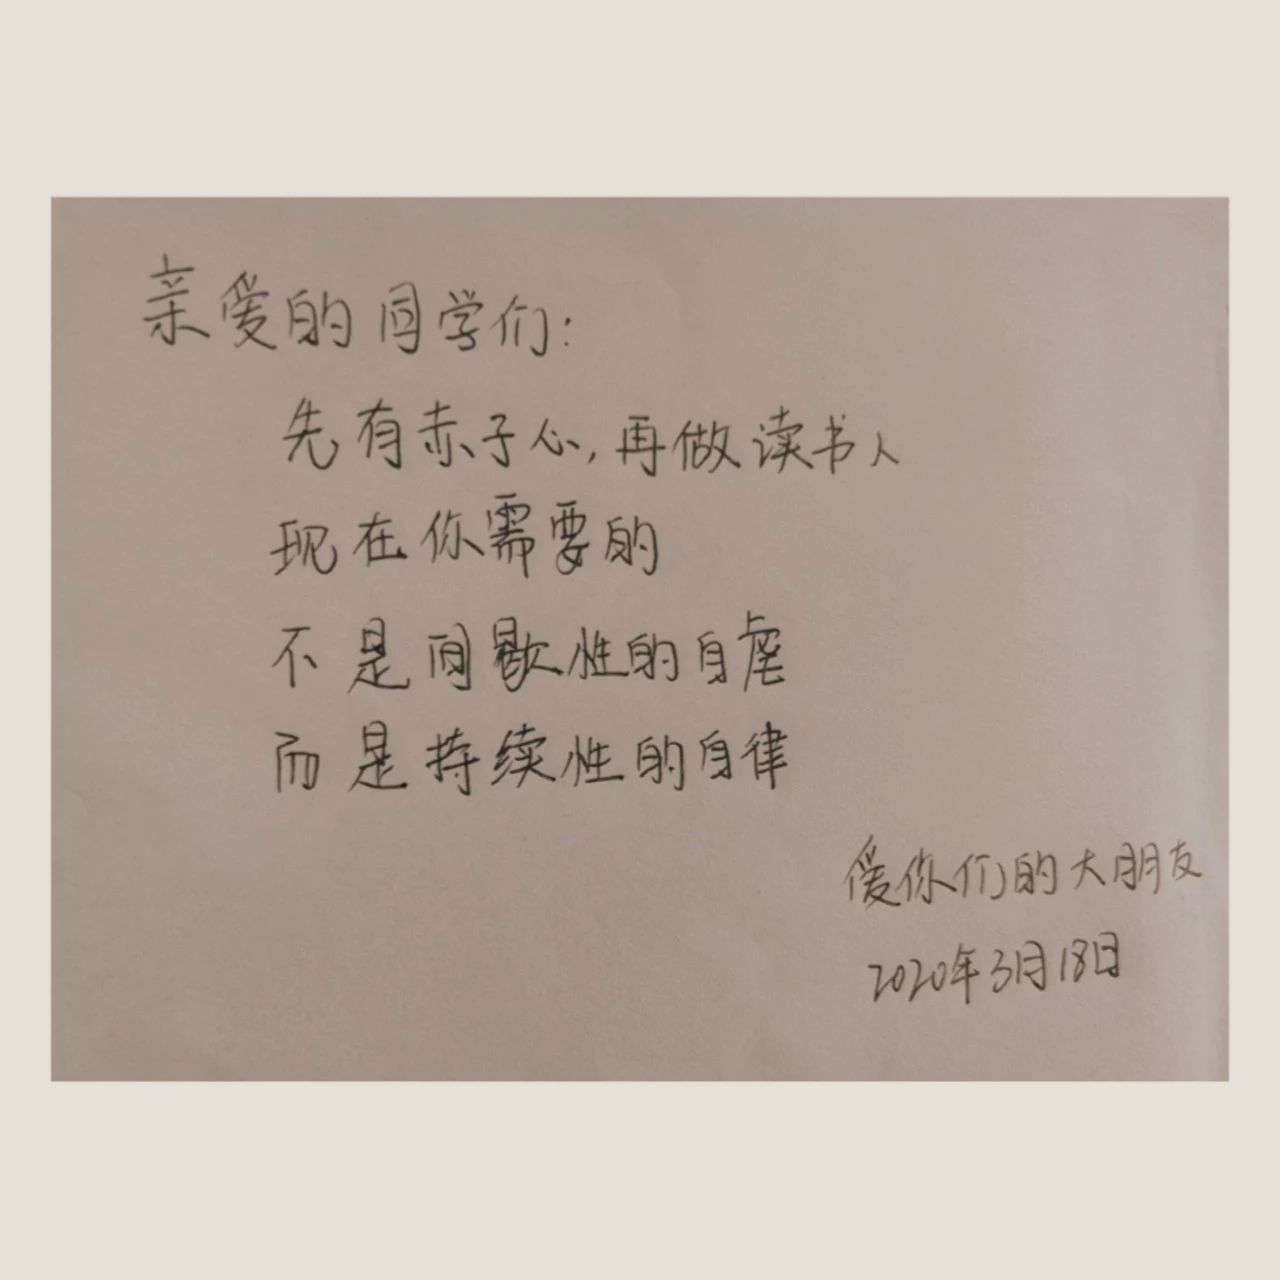 亲爱的同学们:
先有赤子心,再做读书人
现在你需要的
不是间歇性的自虐
而是持续性的自律
爱你们的大朋友
2020年3月18日